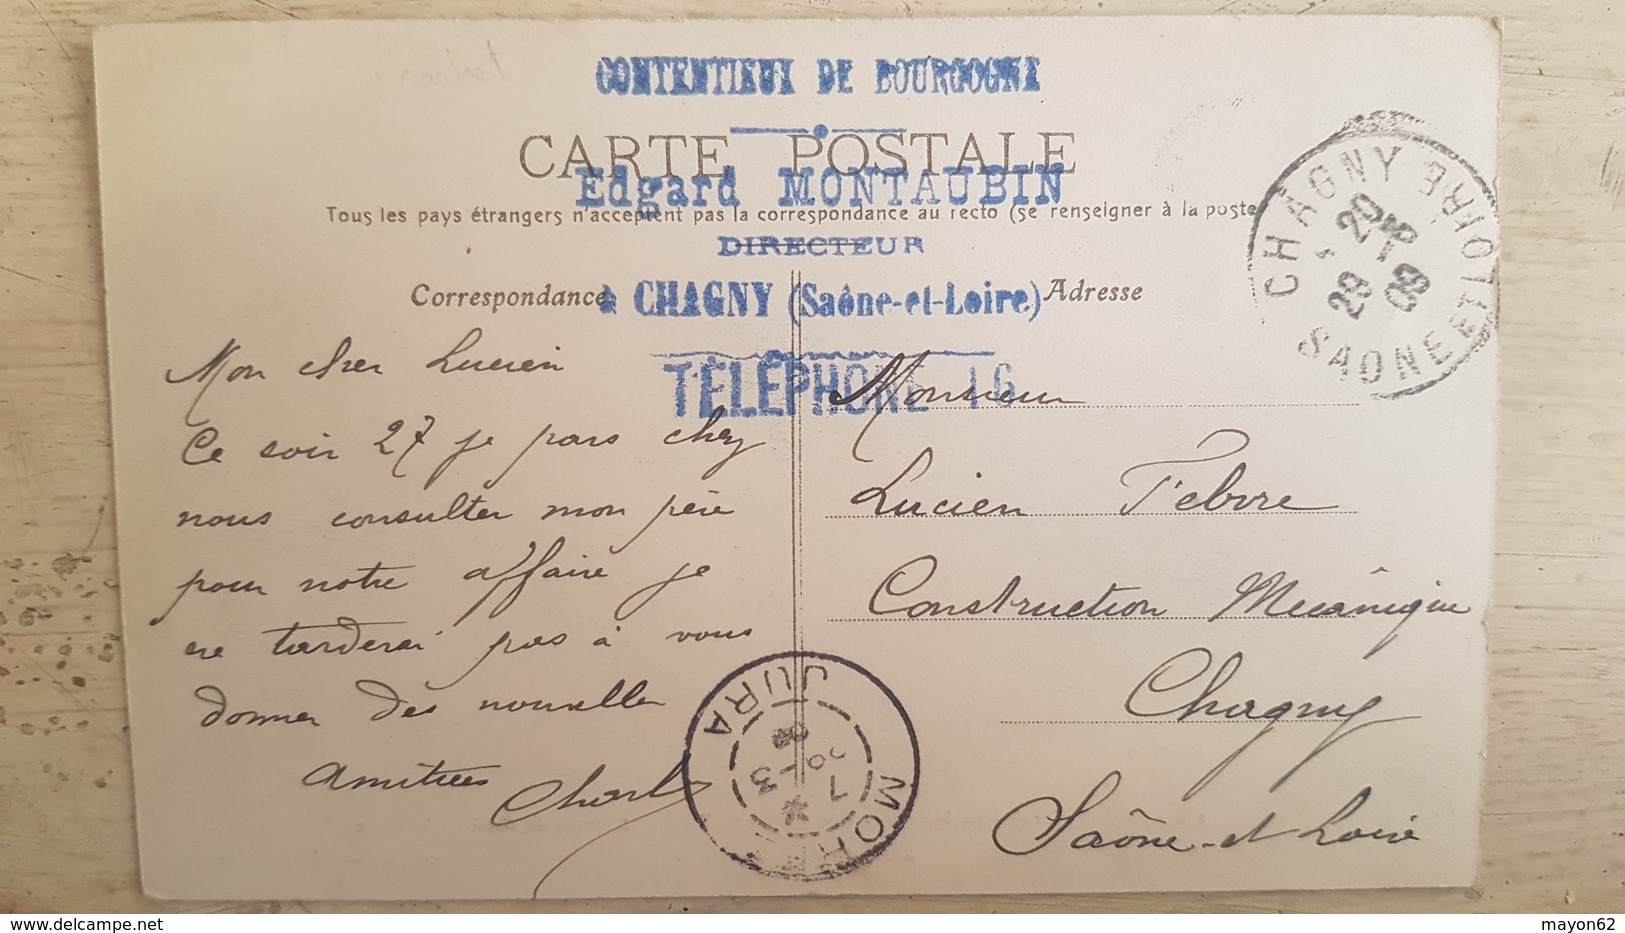 CONTENTIEUX DE BOURGOGNE
CARTE POSTALE
Edgard MONTAUBIN
Tous les pays étrangers n'acceptent pas la correspondance au recto (se renseigner à la poste
DIRECTEUR
Correspondance
à CHAGNY (Saône-et-Loire)
Adresse
TÉLÉPHONE 16
CHAGNY
SAONE ET LOIRE
Mon cher Lucien
Ce soir 27 je pars chez
nous consulter mon père
pour notre affaire je
ne tarderai pas à vous
donner des nouvelles
amitiées
Charles
Monsieur
Lucien Febvre
Construction Mécânique
Chagny
Saône-et Loire
JURA
delcampe.net
mayon62